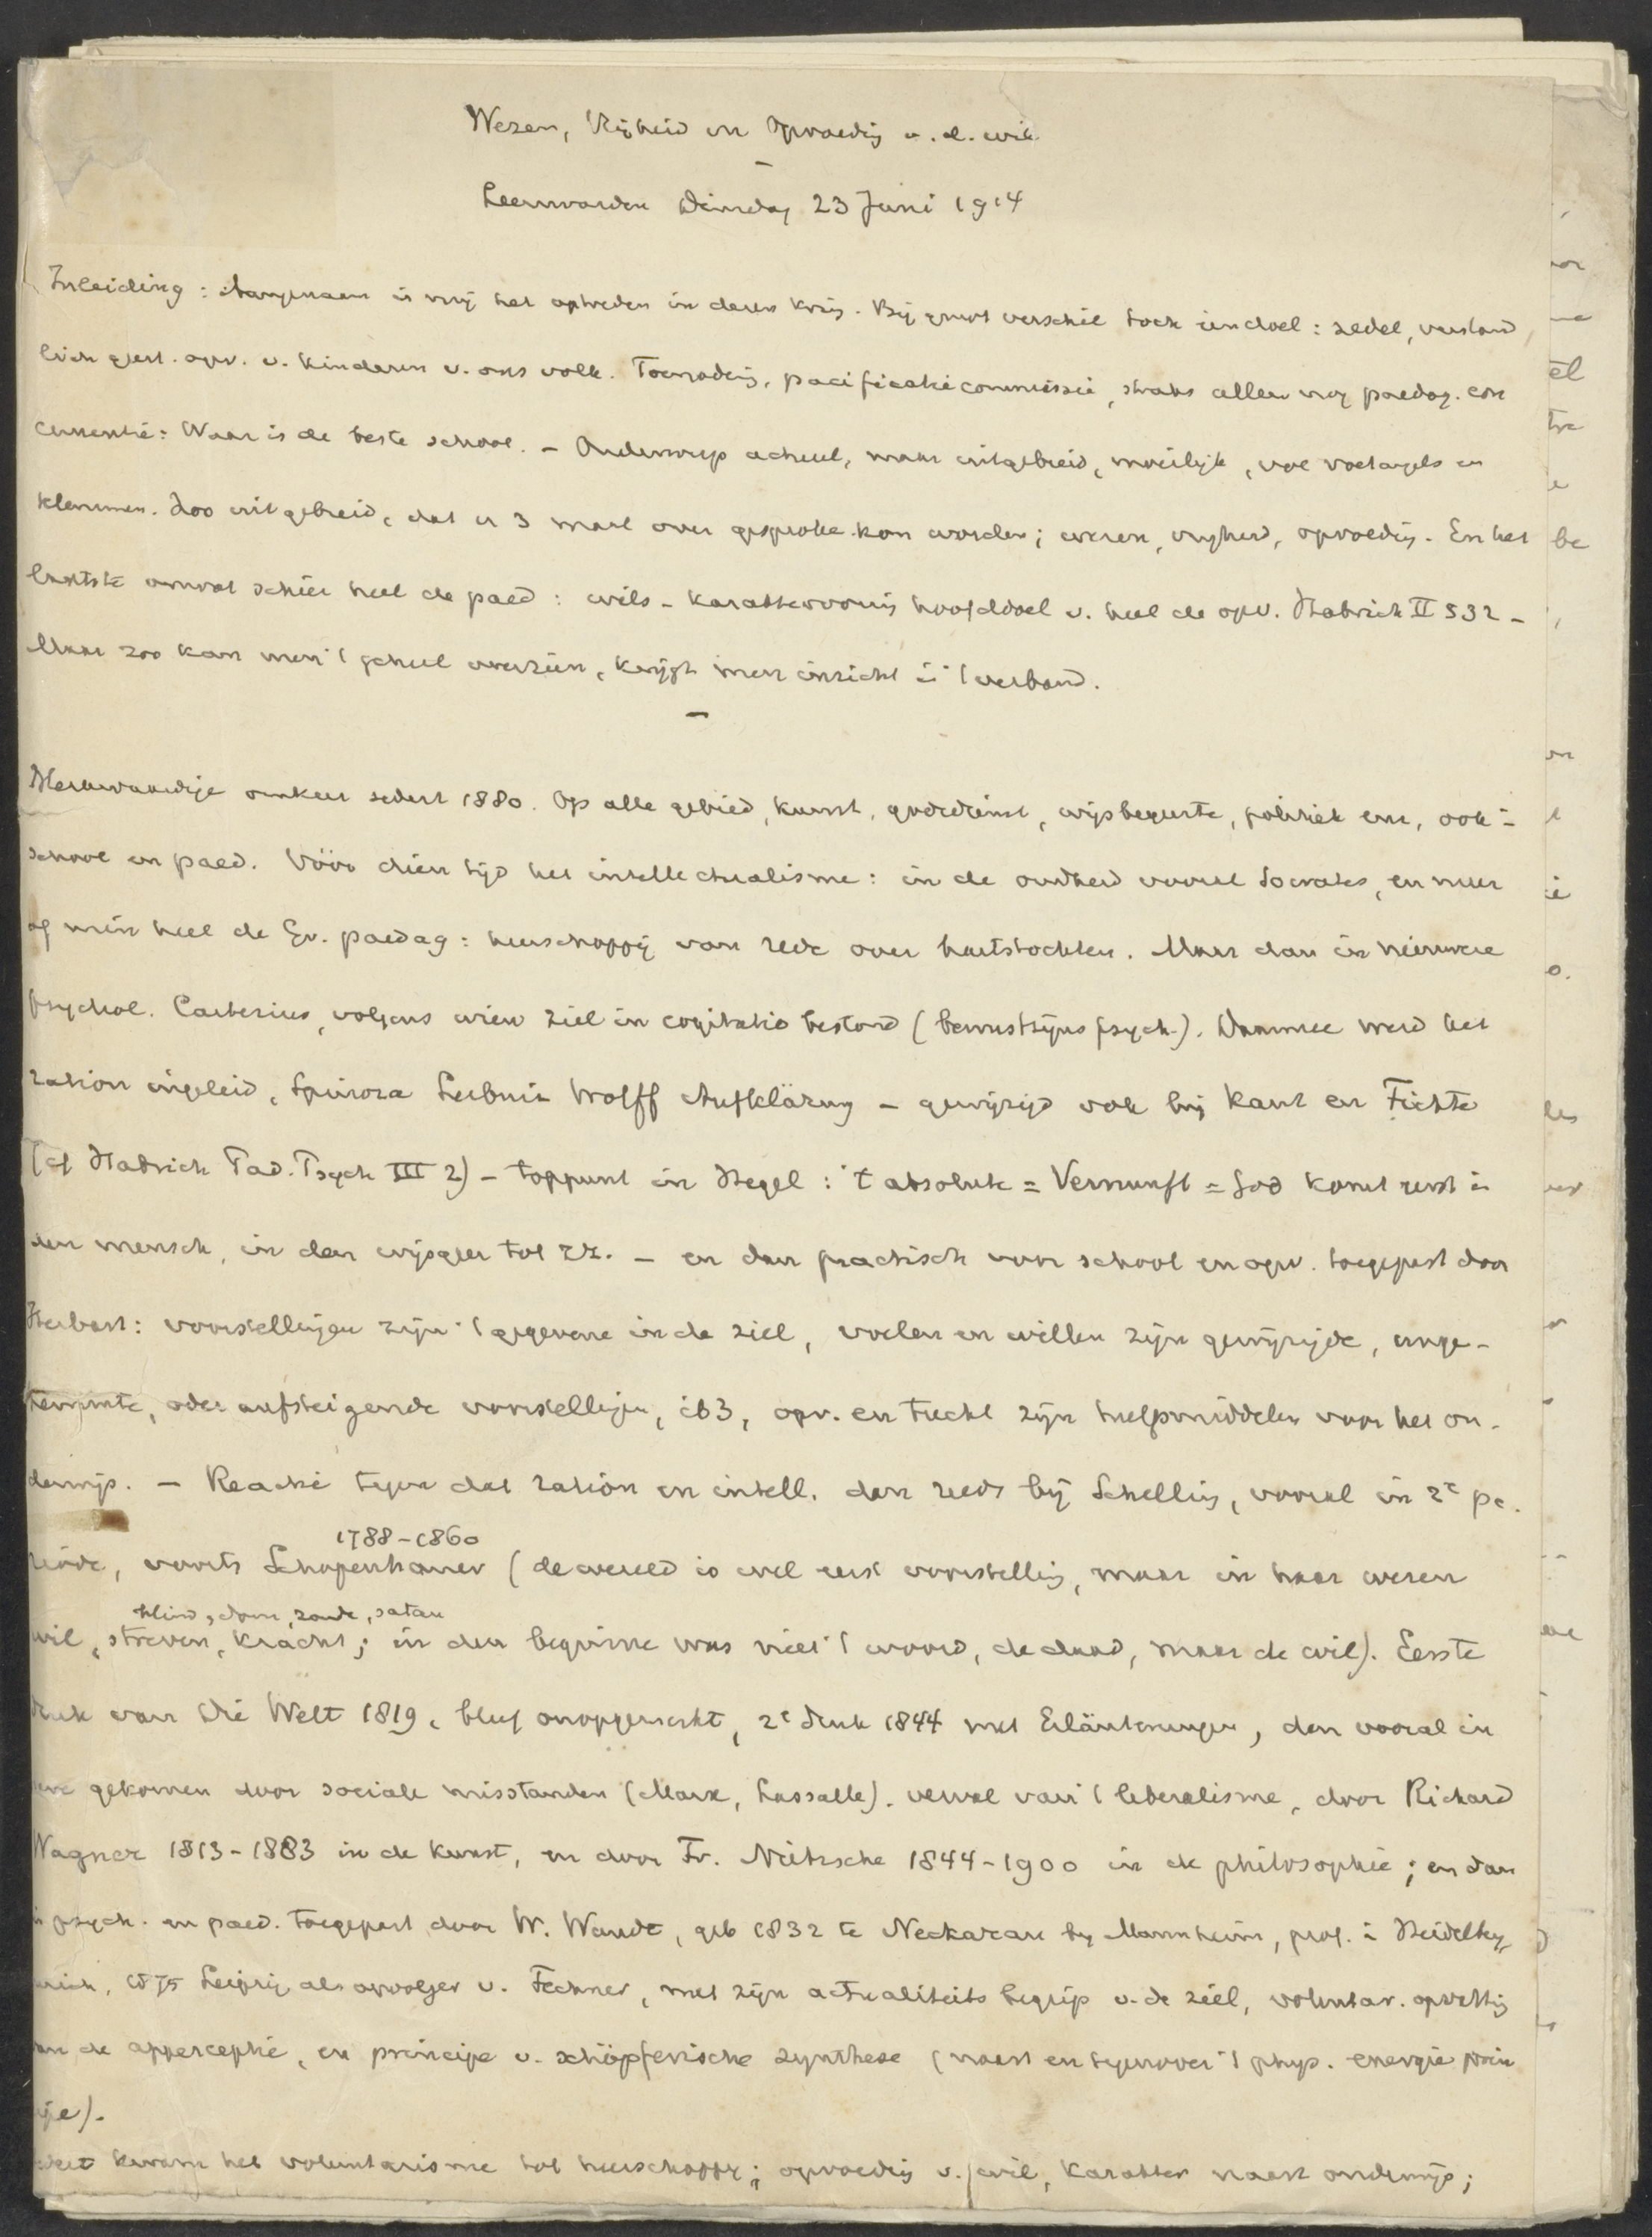 Wezen, Vrijheid en Opvoedig v. d. wil
Leeuwarden Dinsdag 23 Juni 1914
Inleiding: Aangenaam is mij het optreden in dezen kring. Bij groot verschil toch een doel: zedel, verstand
lich opv. v. kinderen v. ons volk. Toenadering, pacificatiecommissie, straks alleen nog paedag. con
currentie: Waar is de beste school. – Onderwerp actueel, maar uitgebreid, moeilijk, vol voetangels en
klemmen. Zoo uitgebreid, dat er 3 maal over gesproke kon worden; wezen, vrijheid, opvoedig. En het
laatste omvat schier heel de paed: wils-karaktervormig hoofddoel v. heel de opv. Habrich II 532 –
Maar zoo kan men 't geheel overzien, krijgt men inzicht i 't verband.
Merkwaardige omkeer sedert 1880. Op alle gebied, kunst, godsdienst, wijsbegeerte, politiek enz, ook i
school en paed. Vóór dien tijd het intellectualisme: in de oudheid vooral Socrates, en meer
of min heel de Gr. paedag: heerschappij van rede over hartstochten. Maar dan in nieuwere
psychol. Cartesius, volgens wien ziel in cogitatio bestond (bewustzijns psych.). Daarmee werd het
ration ingeleid, Spinoza Leibniz Wolff Aufklärung – gewijzigd ook bij Kant en Fichte
(cf Habrich Päd. Psych III 2) – toppunt in Hegel: 't absolute = Vernunft = God komt eerst i
den mensch, in den wijsgeer tot zz. – en dan practisch voor school en opv. toegepast door
Herbart: voorstellingen zijn 't gegevene in de ziel, voelen en willen zijn gewijzigde, onge-
hemmte, oder aufsteigende voorstellingen, ib 3, opv. en tucht zijn hulpmiddelen voor het on-
derwijs. – Reactie tegen dat ration en intell. dan reeds bij Schelling, vooral in 2e pe.
riode, voorts Schopenhauer (de wereld is wel eerst voorstellig, maar in haar wezen
1788–1860
wil, streven, kracht; in den beginne was niet 't woord, de daad, maar de wil). Eerste
blind, dom, zonde, satan
druk van Die Welt 1819, bleef onopgemerkt, 2e druk 1844 met Erläuterungen, dan vooral in
eere gekomen door sociale misstanden (Marx, Lassalle). verval van 't liberalisme, door Richard
Wagner 1813–1883 in de kunst, en door Fr. Nietzsche 1844–1900 in de philosophie; en dan
i psych. en paed. toegepast door W. Wundt, geb 1832 te Neckarau bij Mannheim, prof. i Heidelbg,
Zürich, 1875 Leipzig als opvolger v. Fechner, met zijn actualiteits begrip v. de ziel, voluntar. opvattig
van de apperceptie, en principe v. schöpferische Synthese (naast en tegenover 't phys. energie prin
cipe).
kwam het voluntarisme tot heerschappij; opvoedig v. wil, karakter naast onderwijs;